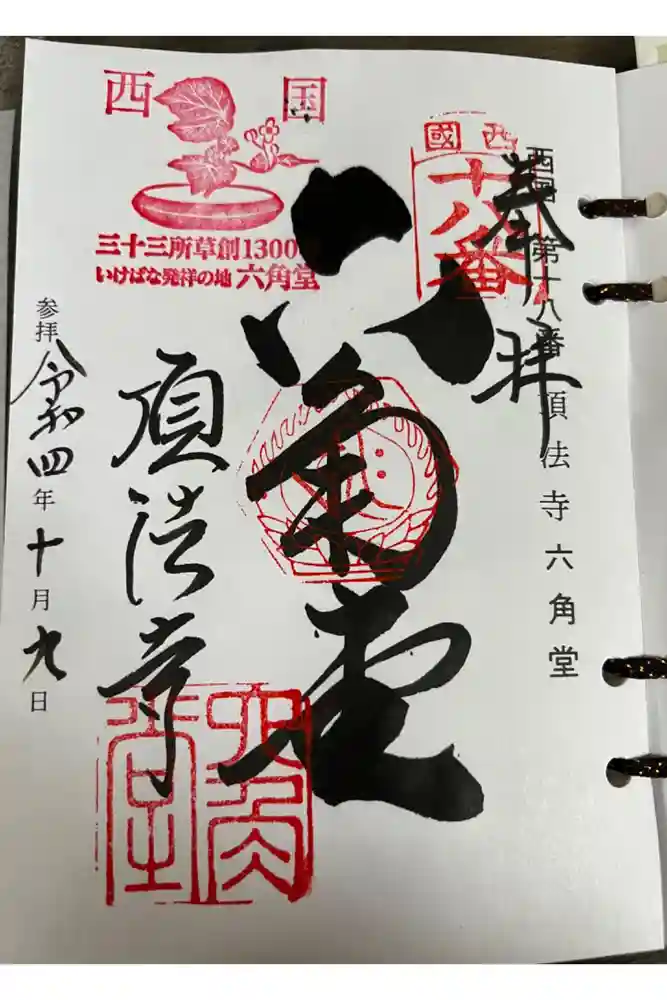 奉拝
西国 第十八番 頂法寺六角堂
西國
十八番
六角堂
西国
三十三所草創1300年
いけばな発祥の地 六角堂
頂法寺
六角堂
参拝 令和四年十月九日